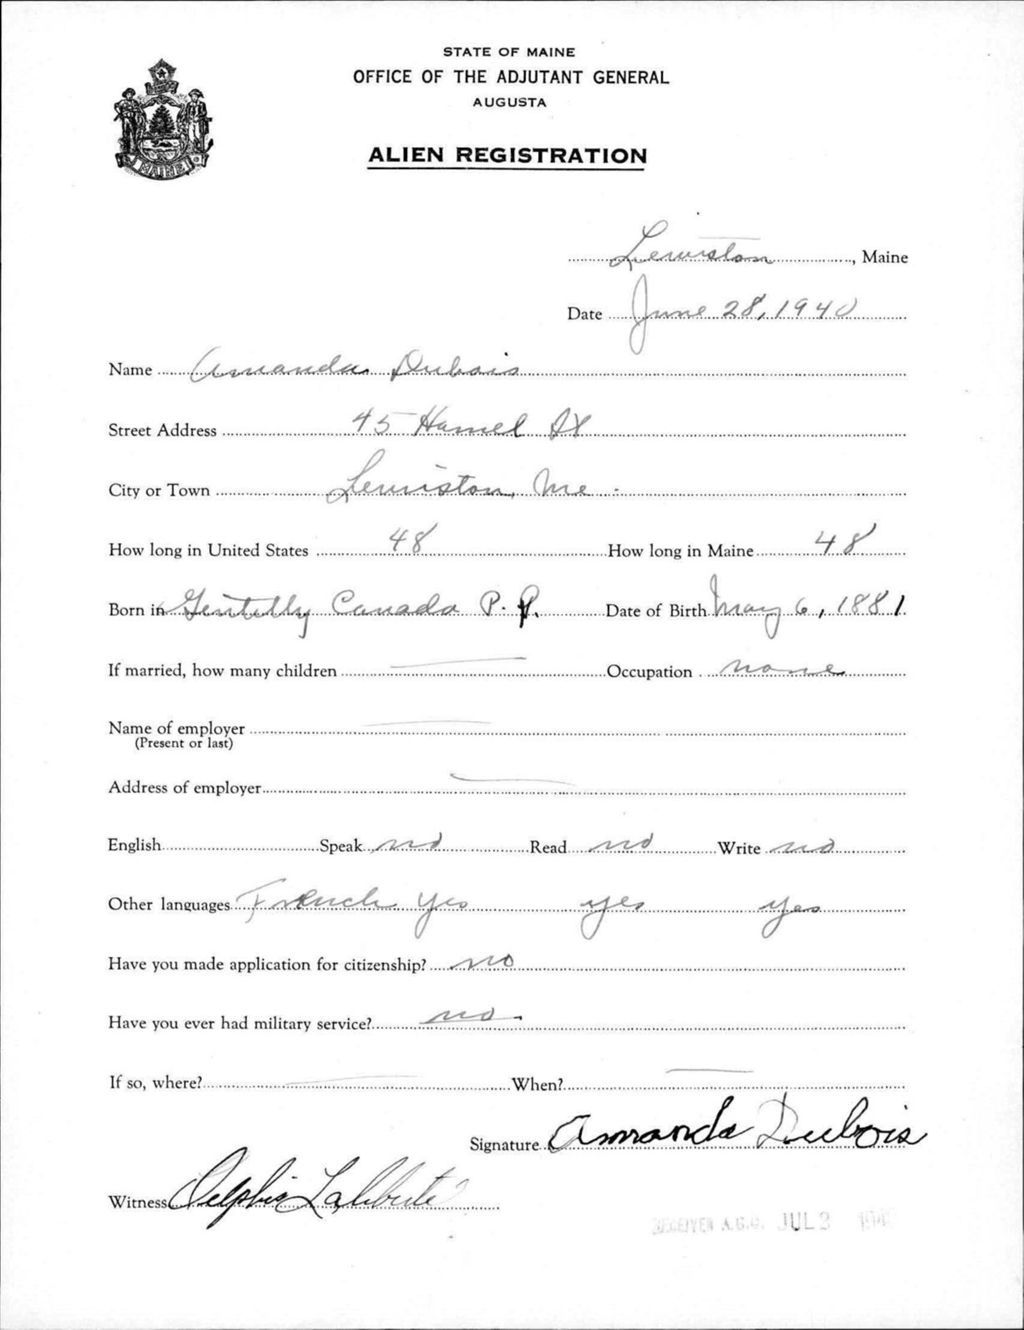 STATE OF MAINE
OFFICE OF THE ADJUTANT GENERAL
AUGUSTA
ALIEN REGISTRATION
MAINE
Lewiston, Maine
Date June 28, 1940
Name Amanda Dubois
Street Address 45 Hamel St
City or Town Lewiston, Me.
How long in United States 48 How long in Maine 48
Born in Gentilly Canada P. Date of Birth May 6, 1881
If married, how many children — Occupation none
Name of employer —
(Present or last)
Address of employer —
English Speak no Read no Write no
Other languages French yes yes yes
Have you made application for citizenship? no
Have you ever had military service? no -
If so, where? — When? —
Signature Amanda Dubois
Witness Delphis Laliberte
RECEIVED A.G.O. JUL 2 1940